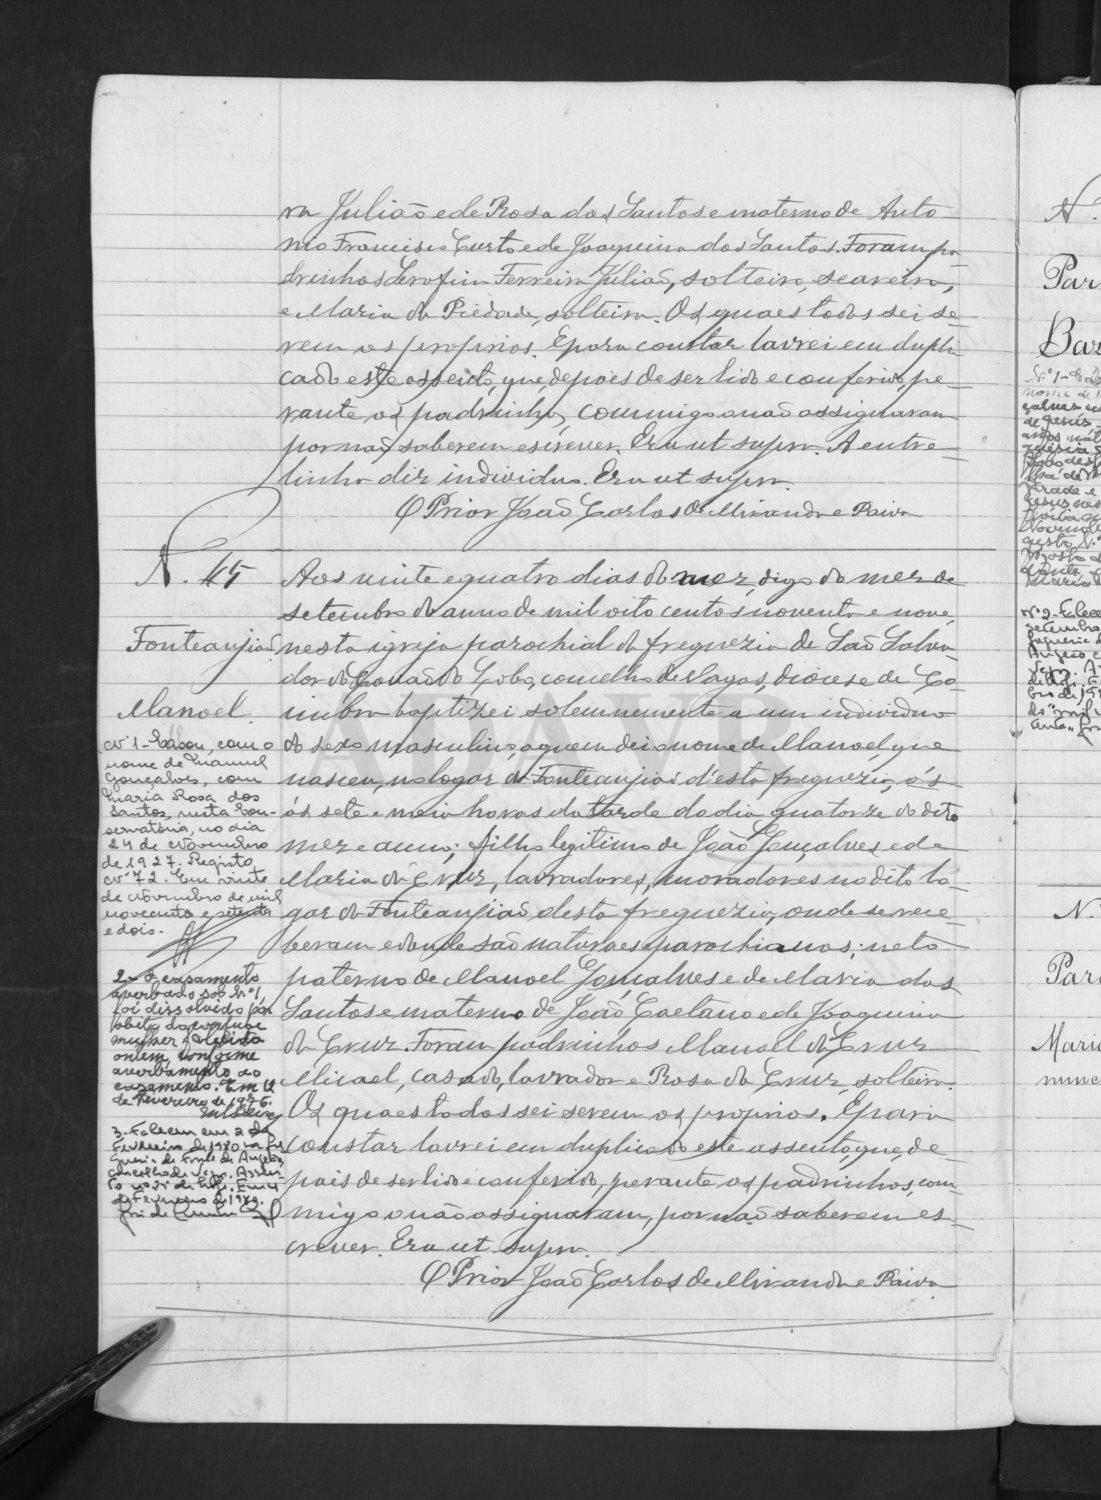 ra Julião e de Rosa dos Santos e materno de Anto-
nio Francisco Curto e de Joaquina dos Santos. Foram pa-
drinhos Serafim Ferreira Julião, solteiro, seareiro,
e Maria da Piedade, solteira. Os quaes todos sei se-
rem os proprios. E para constar lavrei em dupli-
cado este assento, que depois de ser lido e conferido, pe-
rante os padrinhos, commigo o não assignaram
por não saberem escrever. Era ut supra. A entre-
linha diz individuo. Era ut supra.
O Prior João Carlos de Miranda e Paiva
N. 45
Fonteanjiaõ
Manoel.
Aos vinte e quatro dias do mez, digo do mez de
setembro do anno de mil oito centos noventa e nove,
nesta igreja parochial da freguezia de Saõ Salva-
dor do Covaõ do Lobo, concelho de Vagos, diocese de Co-
imbra baptizei solemnemente a um individuo
do sexo masculino, a quem dei o nome de Manoel, que
nasceu, no logar de Fonteanjiaõ d'esta freguezia, ás
ás sete e meia horas da tarde do dia quatorze do dito
mez e anno; filho legitimo de João Gonçalves e de
Maria da Cruz, lavradores, moradores no dito lo-
gar de Fonteanjiaõ, desta freguezia, onde se rece-
beram e donde saõ naturaes e parochianos; neto
paterno de Manoel Gonçalves e de Maria dos
Santos e materno de João Caetano e de Joaquina
da Cruz. Foram padrinhos Manoel da Cruz
Micael, casado, lavrador e Rosa da Cruz, solteira.
Os quaes todos sei serem os proprios. E para
constar lavrei em duplicado este assento, que, de-
pois de ser lido e conferido, perante os padrinhos, com-
migo o não assignaram, por naõ saberem es-
crever. Era ut supra.
O Prior João Carlos de Miranda e Paiva
Nº 1 - Casou, com o
nome de Manuel
Gonçalves, com
Maria Rosa dos
Santos, nesta Con-
servatória, no dia
24 de Novembro
de 1927. Registo
Nº 72. Em vinte
de Novembro de mil
novecentos e setenta
e dois.
2 - O casamento
averbado sob Nº 1,
foi dissolvido por
óbito do conjuge
mulher falecida
ontem conforme
averbamento ao
casamento. Em 12
de Fevereiro de 1976.
3. Faleceu em 2 de
Fevereiro de 1980 na fre-
guesia de Fonte de Angeão,
concelho de Vagos. Assen-
to nº 25 de 1980. Em 4
de Fevereiro de 1980.
N.
Par
Bar
N.
Par
Maria